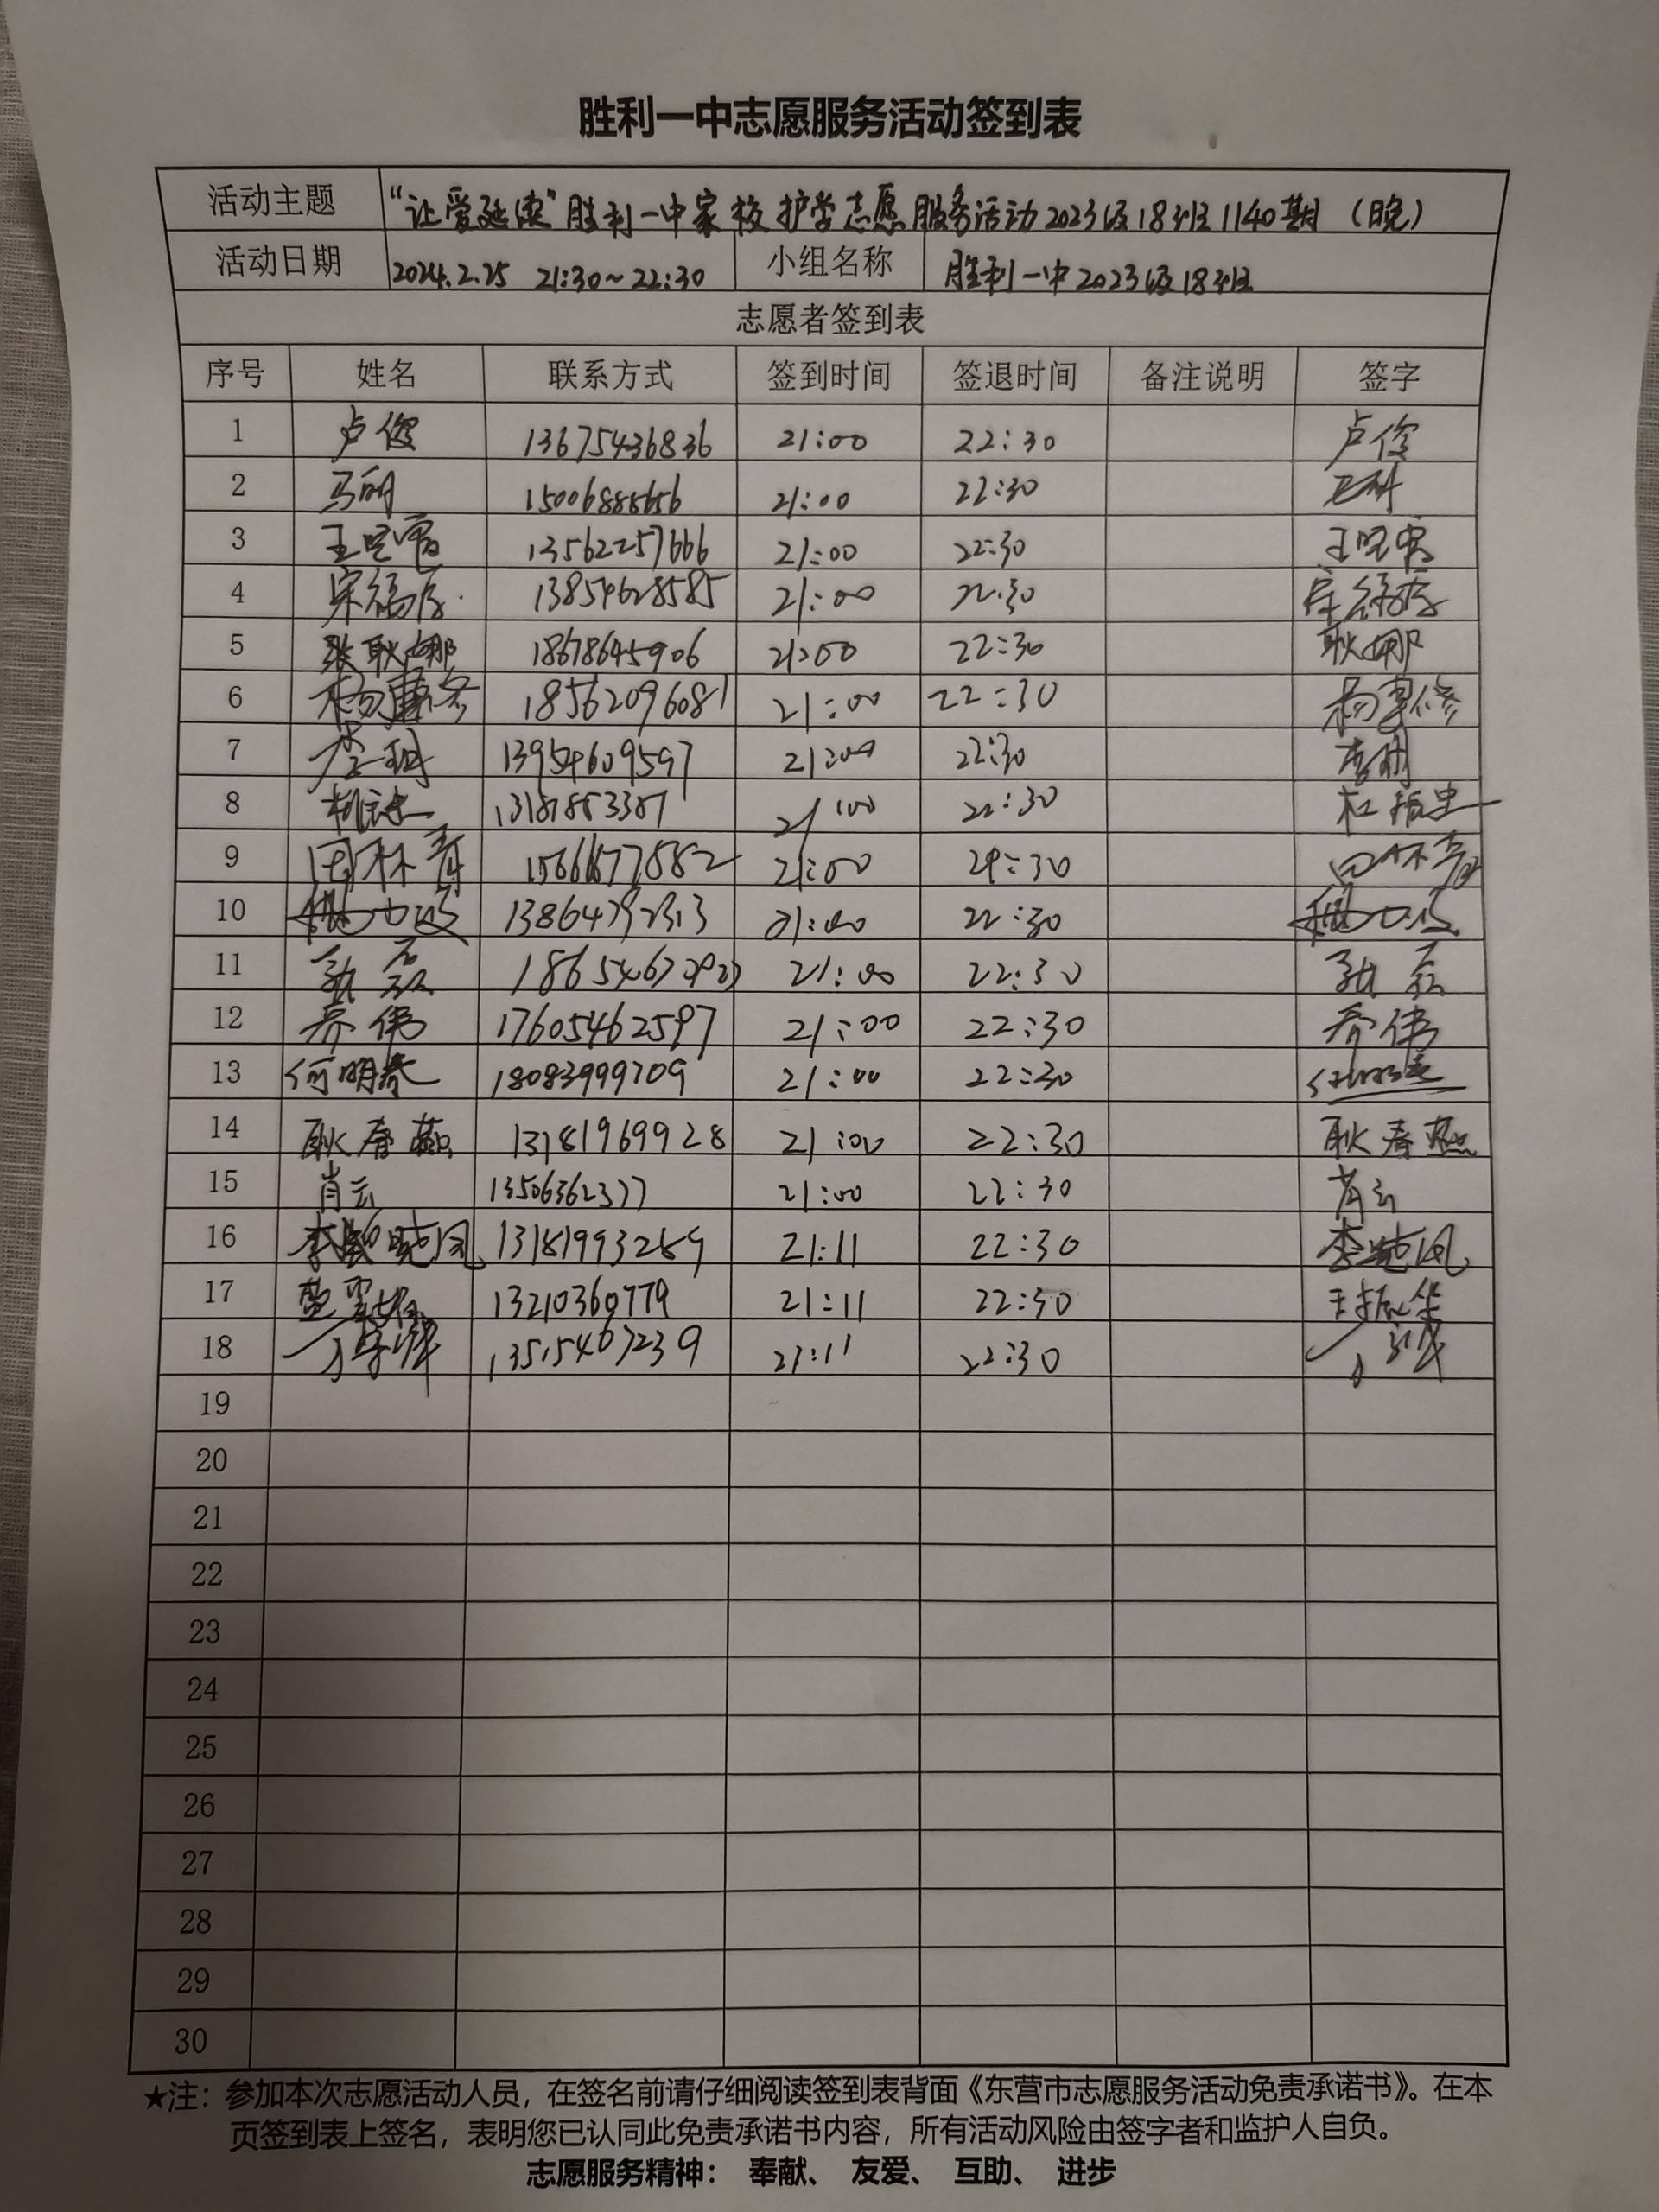 胜利一中志愿服务活动签到表
活动主题 “让爱延续”胜利一中家校护学志愿服务活动2023级18班1140期（晚）
活动日期 2024.2.25 21:30~22:30 小组名称 胜利一中2023级18班
志愿者签到表
序号 姓名 联系方式 签到时间 签退时间 备注说明 签字
1 卢俊 13675436836 21:00 22:30 卢俊
2 21:00 22:30
3 13562257666 21:00 22:30
4 13854628585 21:00 22:30
5 耿娜 18678645906 21:00 22:30 耿娜
6 18562096081 21:00 22:30
7 13954609597 21:00 22:30
8 21:00 22:30 杜振忠
9 田林青 21:00 田林青
10 21:00 22:30
11 21:00 22:30
12 乔伟 17605462597 21:00 22:30 乔伟
13 何明 18083999709 21:00 22:30
14 耿春燕 13181969928 21:00 22:30 耿春燕
15 肖云 13506362377 21:00 22:30 肖云
16 李晓风 13181993289 21:11 22:30 李晓风
17 13210360779 21:11 22:30
18 13515467239 21:11 22:30
19
20
21
22
23
24
25
26
27
28
29
30
★注：参加本次志愿活动人员，在签名前请仔细阅读签到表背面《东营市志愿服务活动免责承诺书》。在本
页签到表上签名，表明您已认同此免责承诺书内容，所有活动风险由签字者和监护人自负。
志愿服务精神： 奉献、 友爱、 互助、 进步